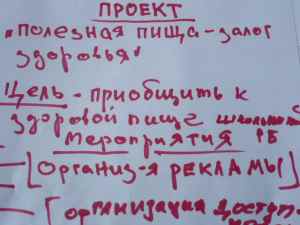 ПРОЕКТ
"Полезная пища - залог
здоровья"
Цель - приобщить к
здоровой пище школьников
РБ
Мероприятия
[Организ-я РЕКЛАМЫ]
[организация доступ